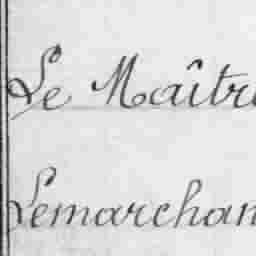 Le Maître
Lemarchan